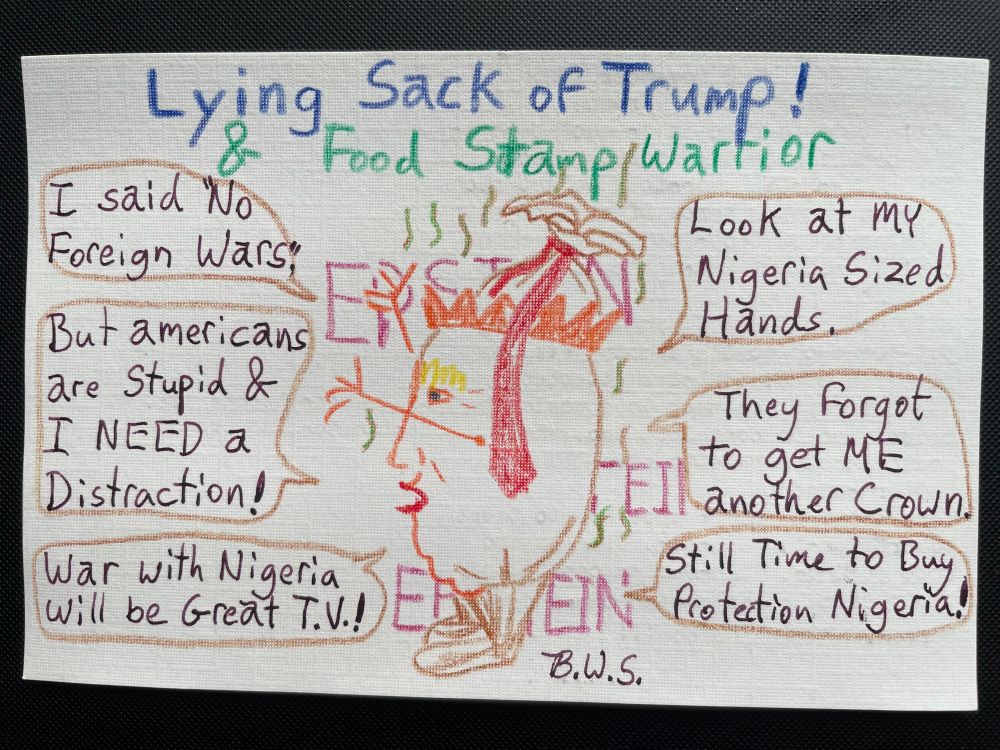 Lying Sack of Trump!
& Food Stamp Warrior
I said "No
Foreign Wars,"
But americans
are Stupid &
I NEED a
Distraction!
War with Nigeria
will be Great T.V.!
Look at MY
Nigeria Sized
Hands.
They Forgot
to get ME
another Crown.
Still Time to Buy
Protection Nigeria!
EPSTEIN
TEIN
EPSTEIN
B.W.S.